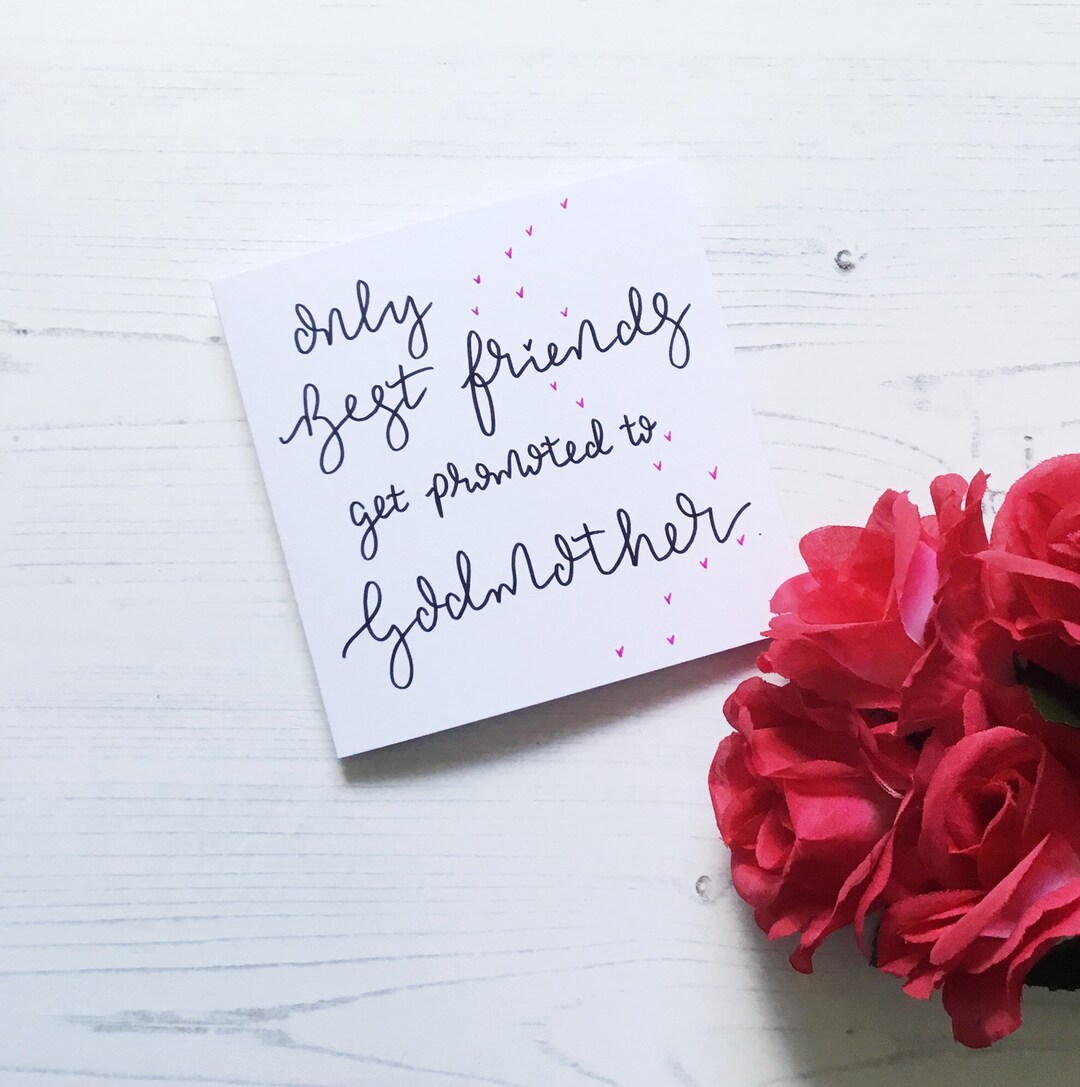 Only
Best friends
get promoted to
Godmother